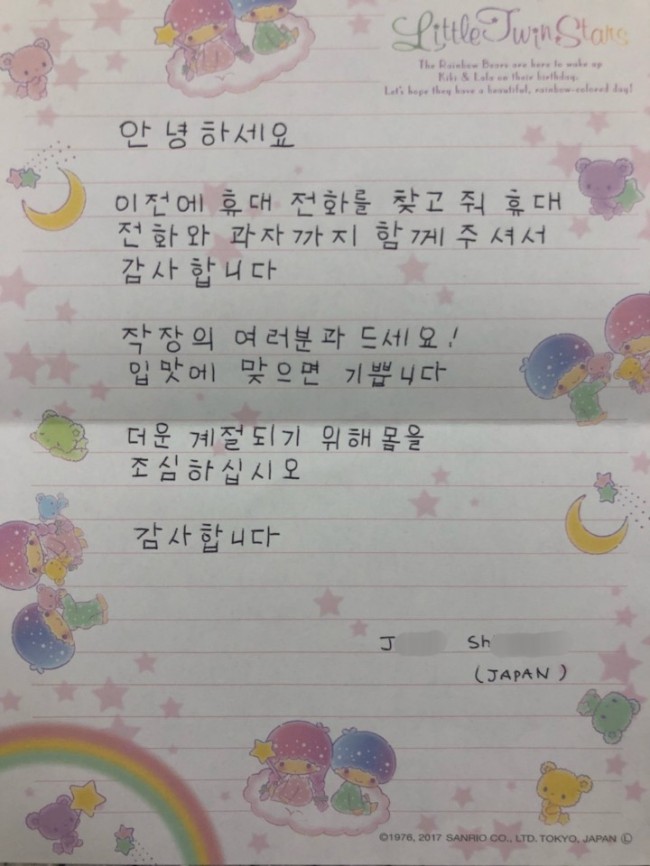 Little Twin Stars
The Rainbow Bears are here to wake up
Kiki & Lala on their birthday.
Let's hope they have a beautiful, rainbow-colored day!
안녕하세요
이전에 휴대 전화를 찾고 줘 휴대
전화와 과자까지 함께주셔서
감사합니다
작장의 여러분과 드세요!
입맛에 맞으면 기쁩니다
더운 계절되기 위해몸을
조심하십시오
감사합니다
J Sh
(JAPAN)
©1976, 2017 SANRIO CO., LTD. TOKYO, JAPAN Ⓛ